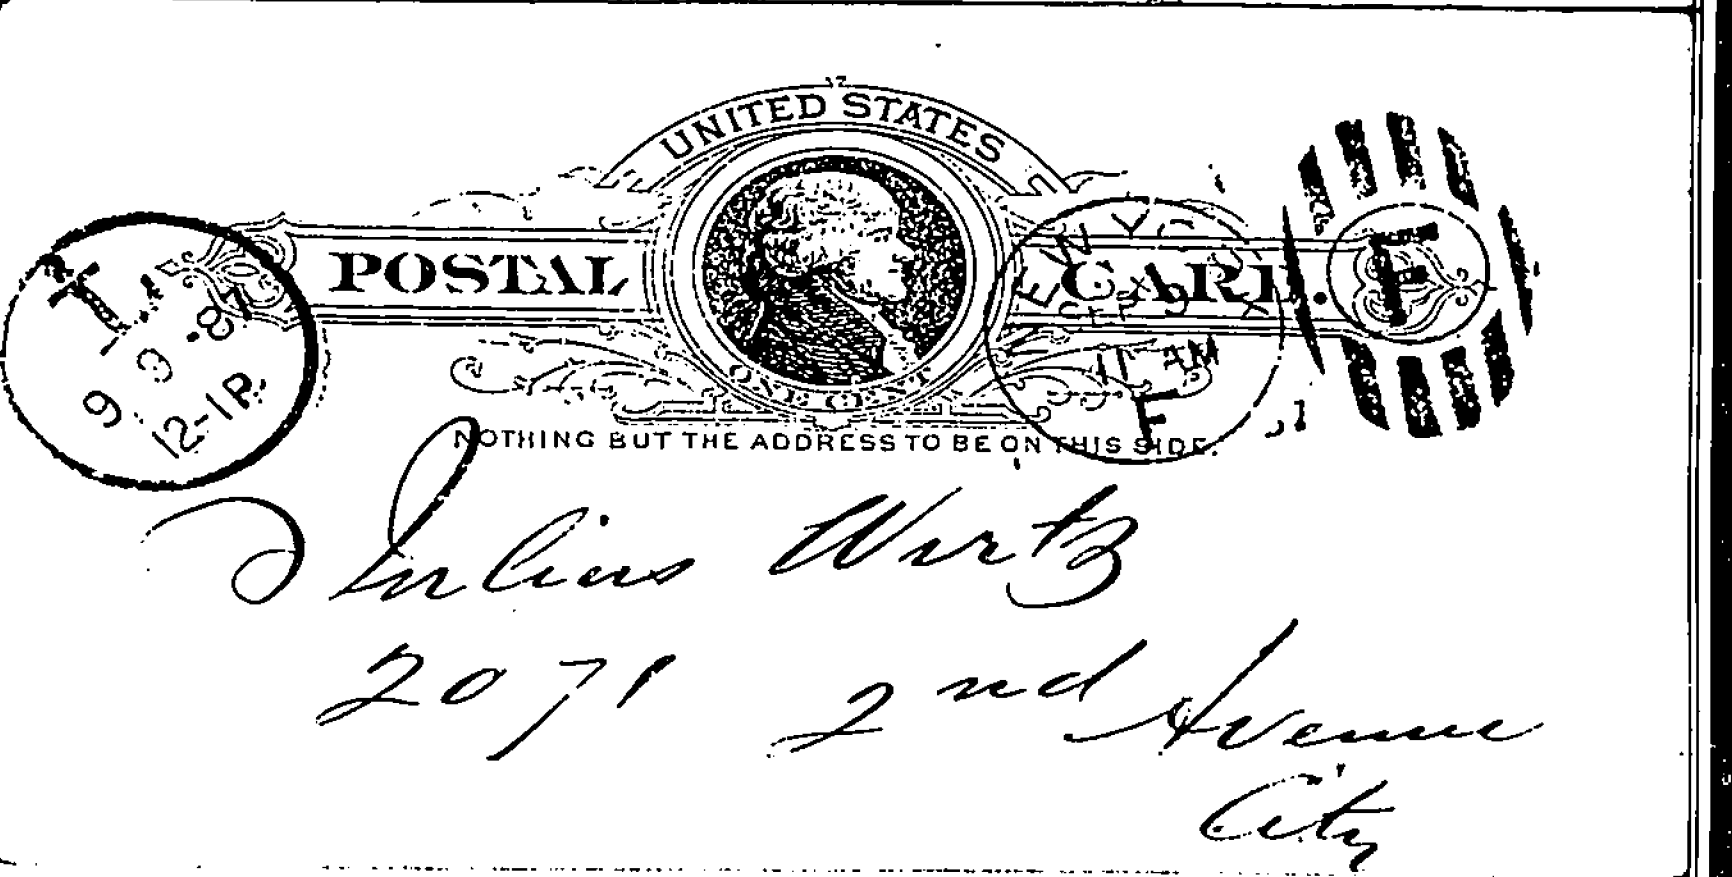 UNITED STATES
POSTAL CARD.
ONE CENT
NOTHING BUT THE ADDRESS TO BE ON THIS SIDE.
NEW Y
SEP 9
11 AM
F
9 9 87
12-1P
Julius Wirtz
2071 2nd Avenue
City